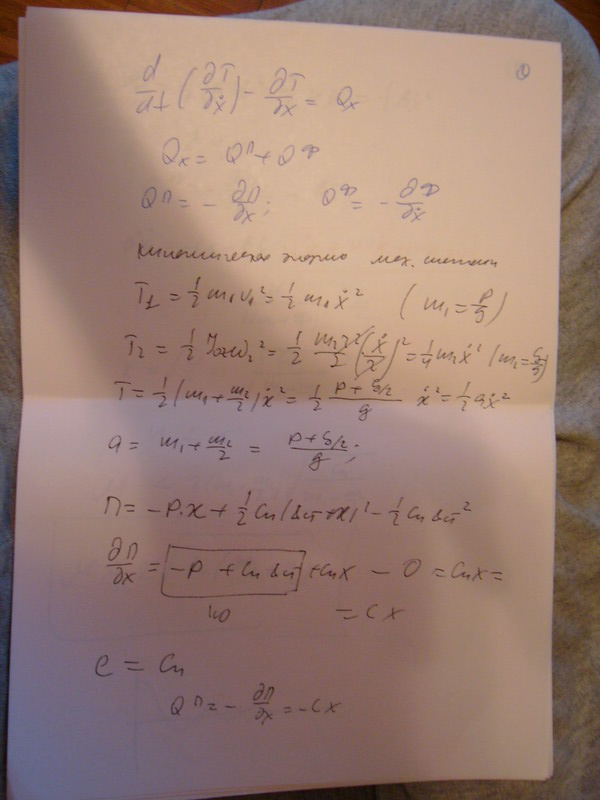 ①
d/dt (∂T/∂ẋ) - ∂T/∂x = Qx
Qx = Qᴨ + Qᶲ
Qᴨ = - ∂П/∂x; Qᶲ = - ∂Ф/∂ẋ
кинетическая энергия мех. системы
T₁ = 1/2 m₁v₁² = 1/2 m₁ẋ² (m₁ = P/g)
T₂ = 1/2 J ω₂² = 1/2 m₂r²/2 (ẋ/r)² = 1/4 m₂ẋ² (m₂ = G/g)
T = 1/2 (m₁ + m₂/2) ẋ² = 1/2 (P + G/2)/g ẋ² = 1/2 aẋ²
a = m₁ + m₂/2 = (P + G/2)/g;
П = -P·x + 1/2 Cп(δст + x)² - 1/2 Cп δст²
∂П/∂x = -P + Cп δст + Cпx - 0 = Cпx =
= Cx
C = Cп
Qᴨ = - ∂П/∂x = -Cx